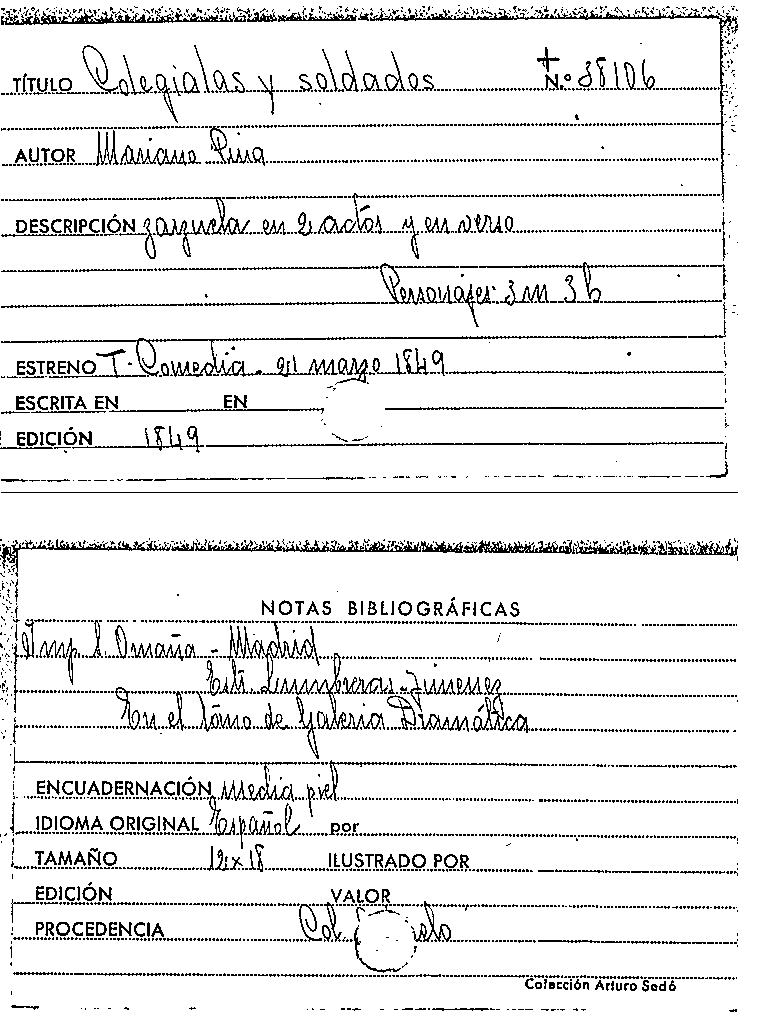 TÍTULO Colegialas y soldados + N.º 38106
AUTOR Mariano Pina
DESCRIPCIÓN zarzuela en 2 actos y en verso
Personajes: 3 m 3 h
ESTRENO T. Comedia. 21 marzo 1849
ESCRITA EN EN
EDICIÓN 1849
NOTAS BIBLIOGRÁFICAS
Imp. S. Omaña - Madrid
Edt. Lumbreras-Jimenez
En el tomo de Galeria Dramática
ENCUADERNACIÓN media piel
IDIOMA ORIGINAL Español por
TAMAÑO 12 x 18 ILUSTRADO POR
EDICIÓN VALOR
PROCEDENCIA Col.
Colección Arturo Sedó